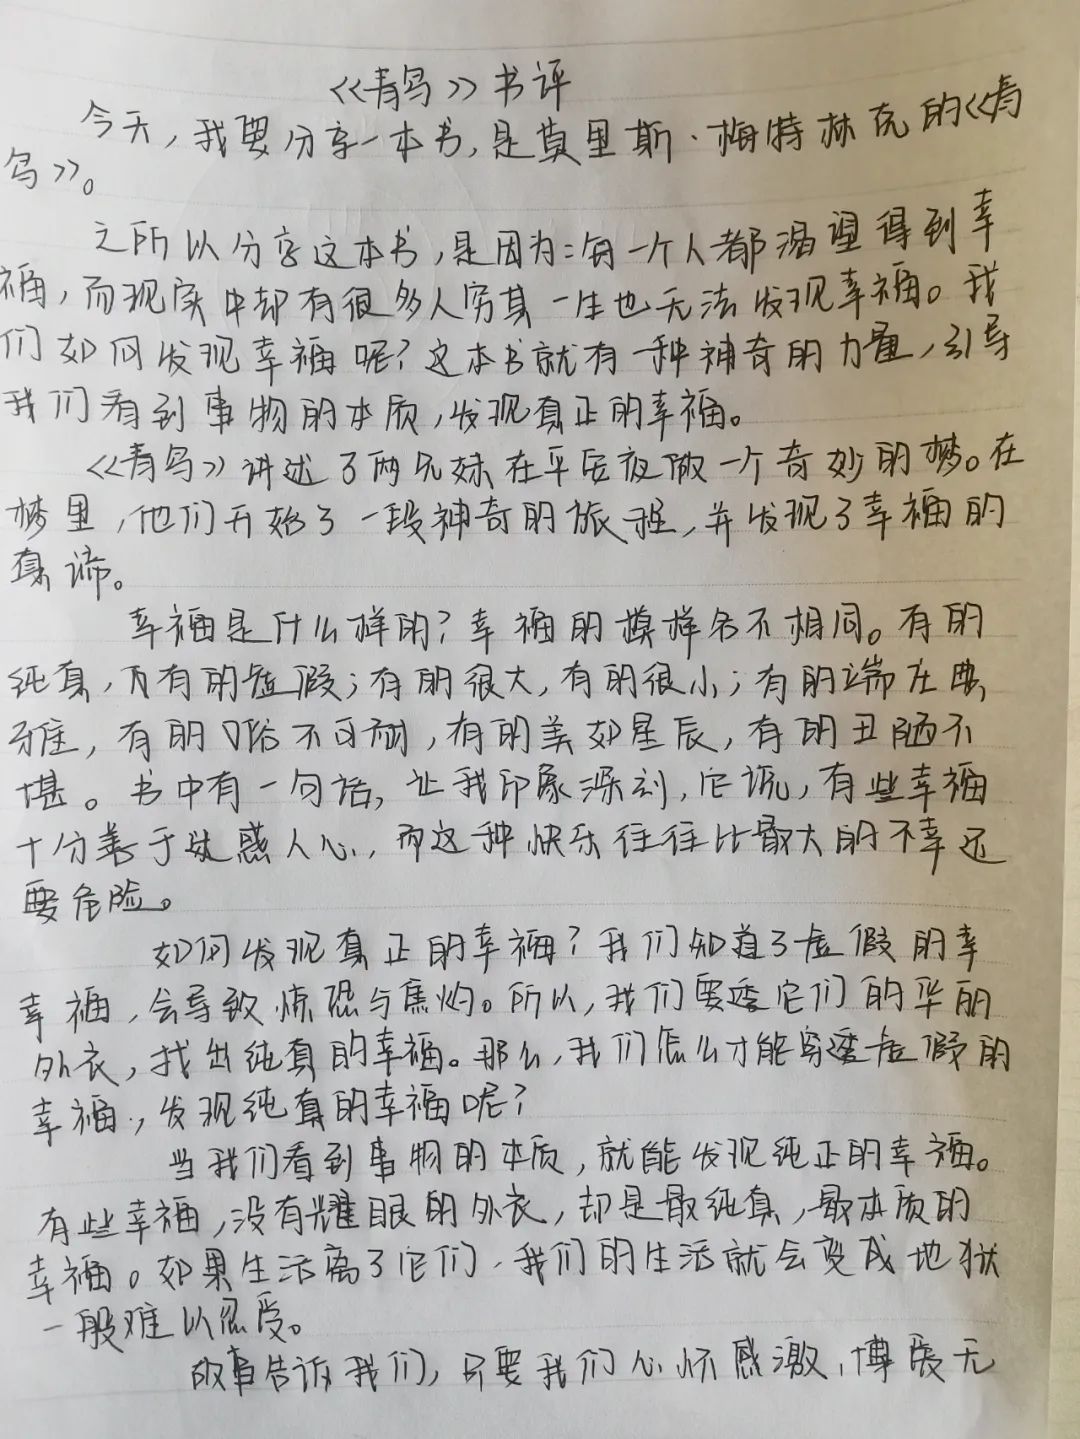 《青鸟》书评
今天，我要分享一本书，是莫里斯·梅特林克的《青
鸟》。
之所以分享这本书，是因为：每一个人都渴望得到幸
福，而现实中却有很多人穷其一生也无法发现幸福。我
们如何发现幸福呢？这本书就有一种神奇的力量，引导
我们看到事物的本质，发现真正的幸福。
《青鸟》讲述了两兄妹在平安夜做一个奇妙的梦。在
梦里，他们开始了一段神奇的旅程，并发现了幸福的
真谛。
幸福是什么样的？幸福的模样各不相同。有的
纯真，有的虚假；有的很大，有的很小；有的端庄典
雅，有的俗不可耐，有的美如星辰，有的丑陋不
堪。书中有一句话，让我印象深刻，它说，有些幸福
十分善于蛊惑人心，而这种快乐往往比最大的不幸还
要危险。
如何发现真正的幸福？我们知道了虚假的幸
幸福，会导致惊恐与焦灼。所以，我们要透它们的华丽
外衣，找出纯真的幸福。那么，我们怎么才能穿透虚假的
幸福，发现纯真的幸福呢？
当我们看到事物的本质，就能发现纯正的幸福。
有些幸福，没有耀眼的外衣，却是最纯真，最本质的
幸福。如果生活离了它们，我们的生活就会变成地狱
一般难以忍受。
故事告诉我们，只要我们心怀感激，博爱无